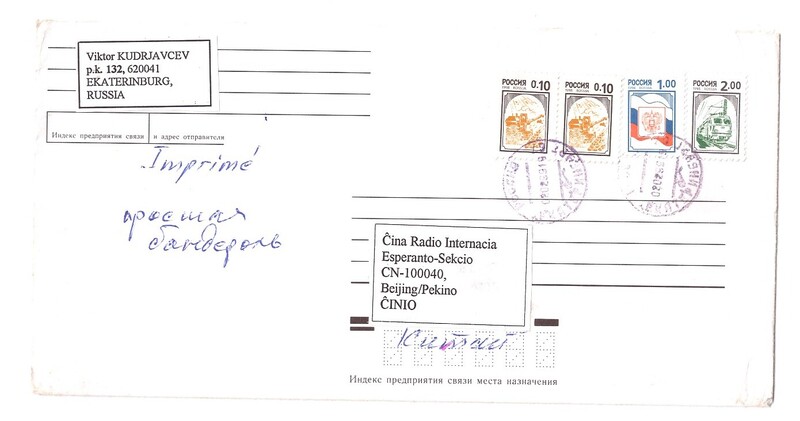 Viktor KUDRJAVCEV
p.k. 132, 620041
EKATERINBURG,
RUSSIA
Индекс предприятия связи и адрес отправителя
Imprimé
простая
бандероль
РОССИЯ 0.10
РОССИЯ 0.10
РОССИЯ 1.00
РОССИЯ 2.00
Ĉina Radio Internacia
Esperanto-Sekcio
CN-100040,
Beijing/Pekino
ĈINIO
Китай
Индекс предприятия связи места назначения